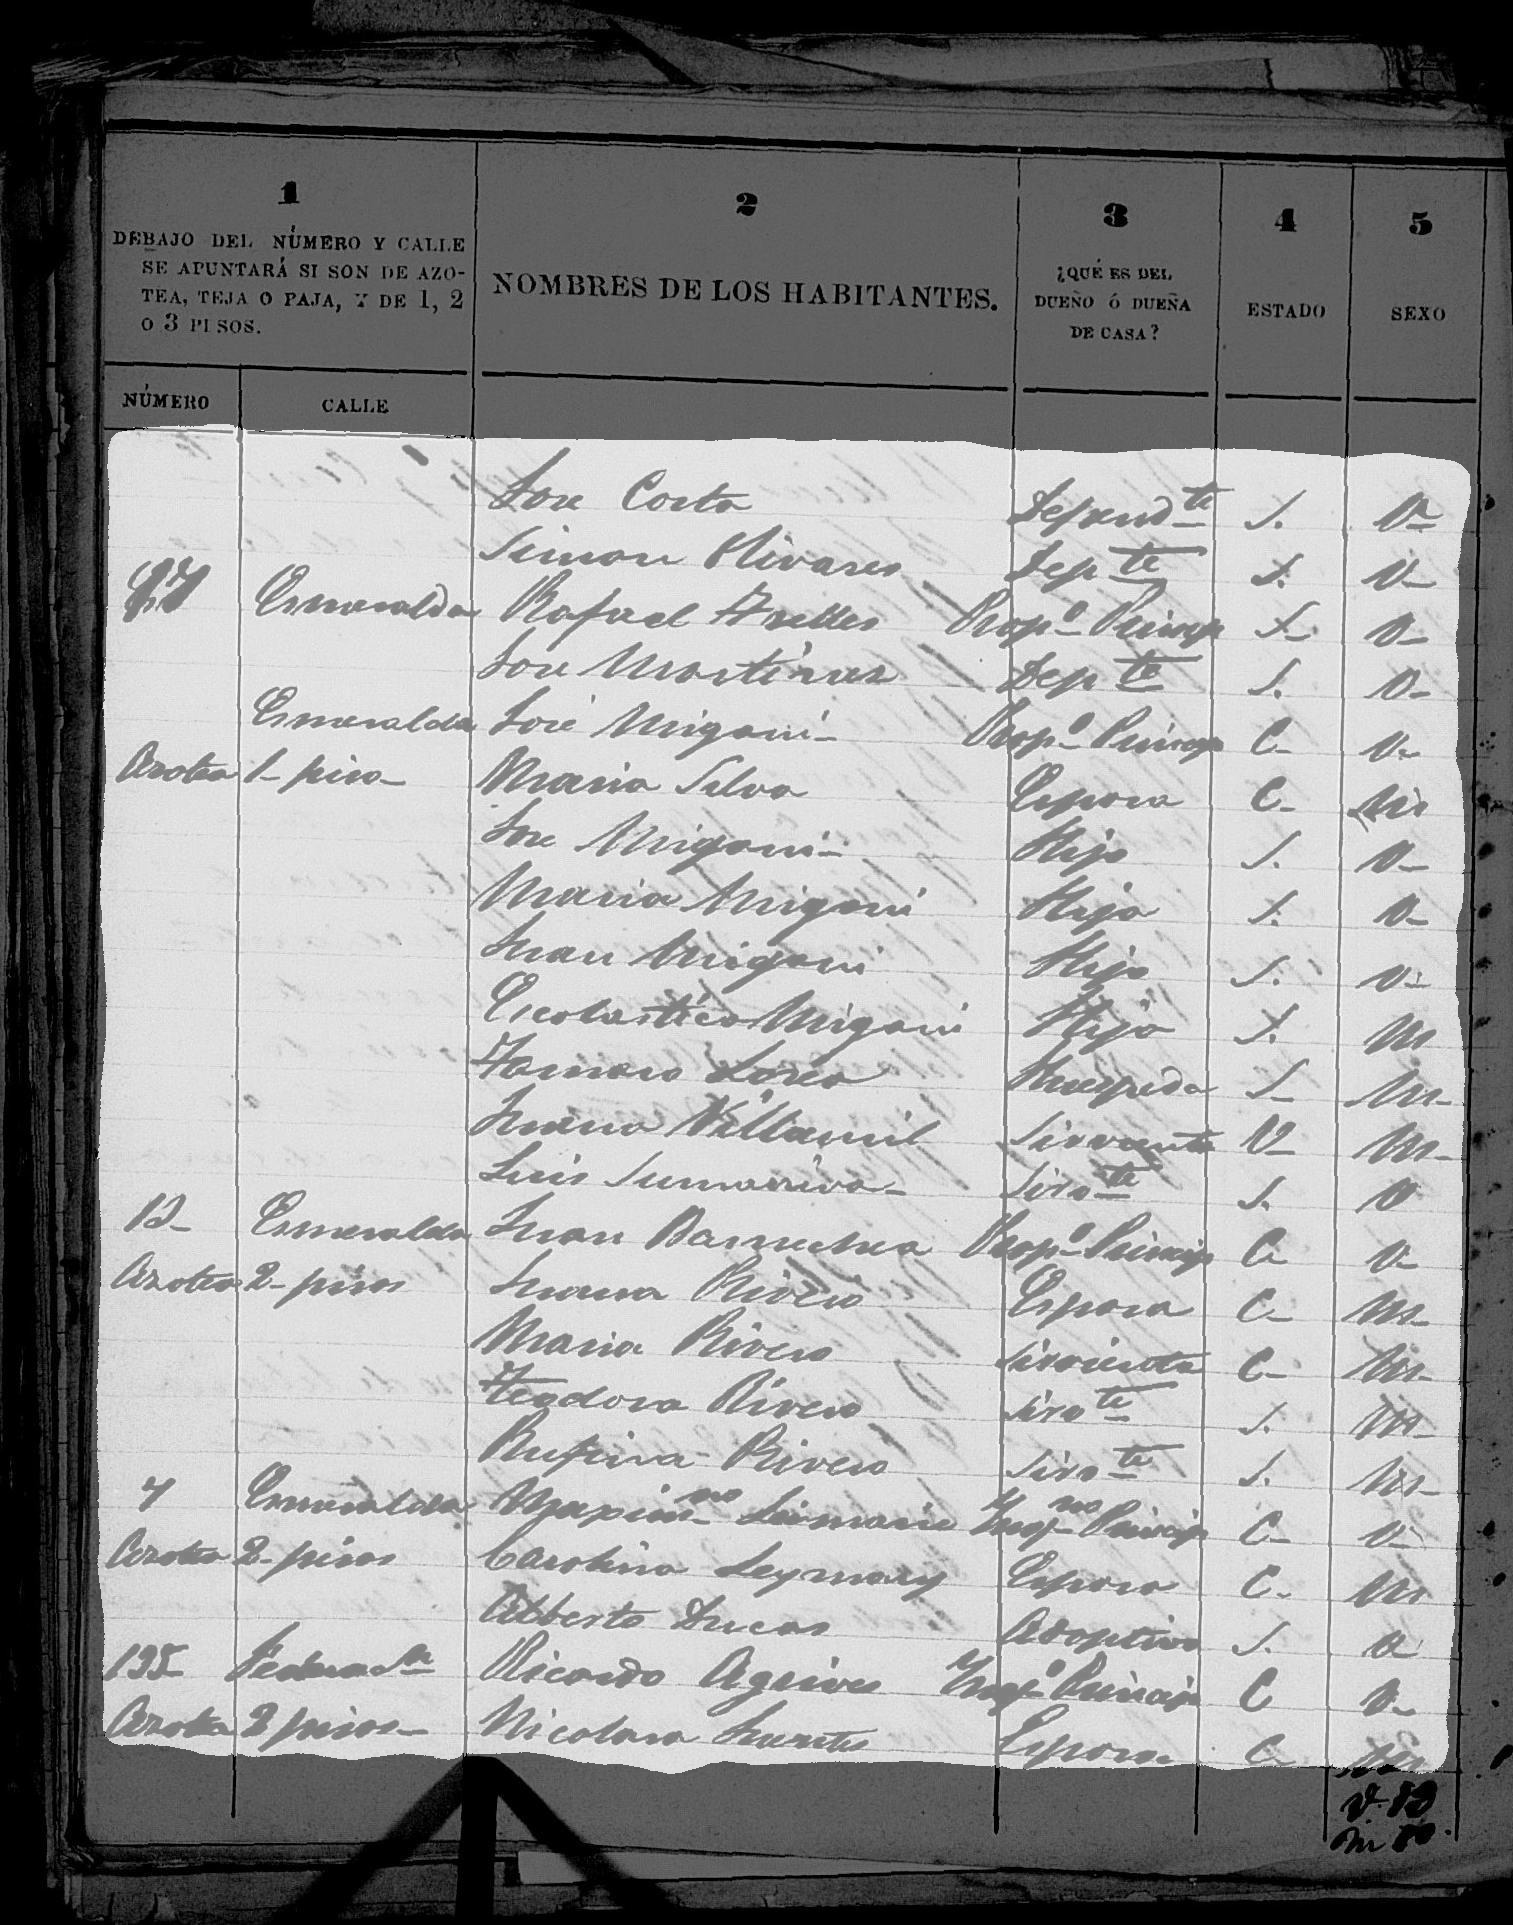 1 2 3 4 5
DEBAJO DEL NÚMERO Y CALLE
SE APUNTARÁ SI SON DE AZO-
TEA, TEJA O PAJA, Y DE 1, 2
O 3 PISOS.
NOMBRES DE LOS HABITANTES.
¿QUÉ ES DEL
DUEÑO Ó DUEÑA
DE CASA?
ESTADO
SEXO
NÚMERO CALLE
Jose Costa Depend te S. V
Simon Olivares Dep te S. V
Esmeralda Rafael Propº Princip S V
Jose Martinez Dep te S. V
Esmeralda José Migoni Propº Princip C V
Azotea 1 piso Maria Silva Esposa C M
Jose Migoni Hijo S. V
Maria Migoni Hija S. V
Juan Migoni Hijo S. V
Escolastica Migoni Hija S. M
Huespeda S M
Juana Villamil Sirvienta V M
Luis Sumarriva Sirv te S. V
12 Esmeralda Juan Propº Princip C V
Azotea 2 pisos Juana Rivero Esposa C M
Maria Rivero Sirvienta C M
Teodora Rivero Sirv te S. M
Rufina Rivero Sirv te S. M
7 Esmeralda Maxim no Inq no Princip C V
Azotea 2 pisos Carolina Esposa C M
Alberto Ducas Adoptivo S. V
195 Ricardo Inqº Princip C V
Azotea 2 pisos Nicolasa Esposa C M
V. 12
M 10